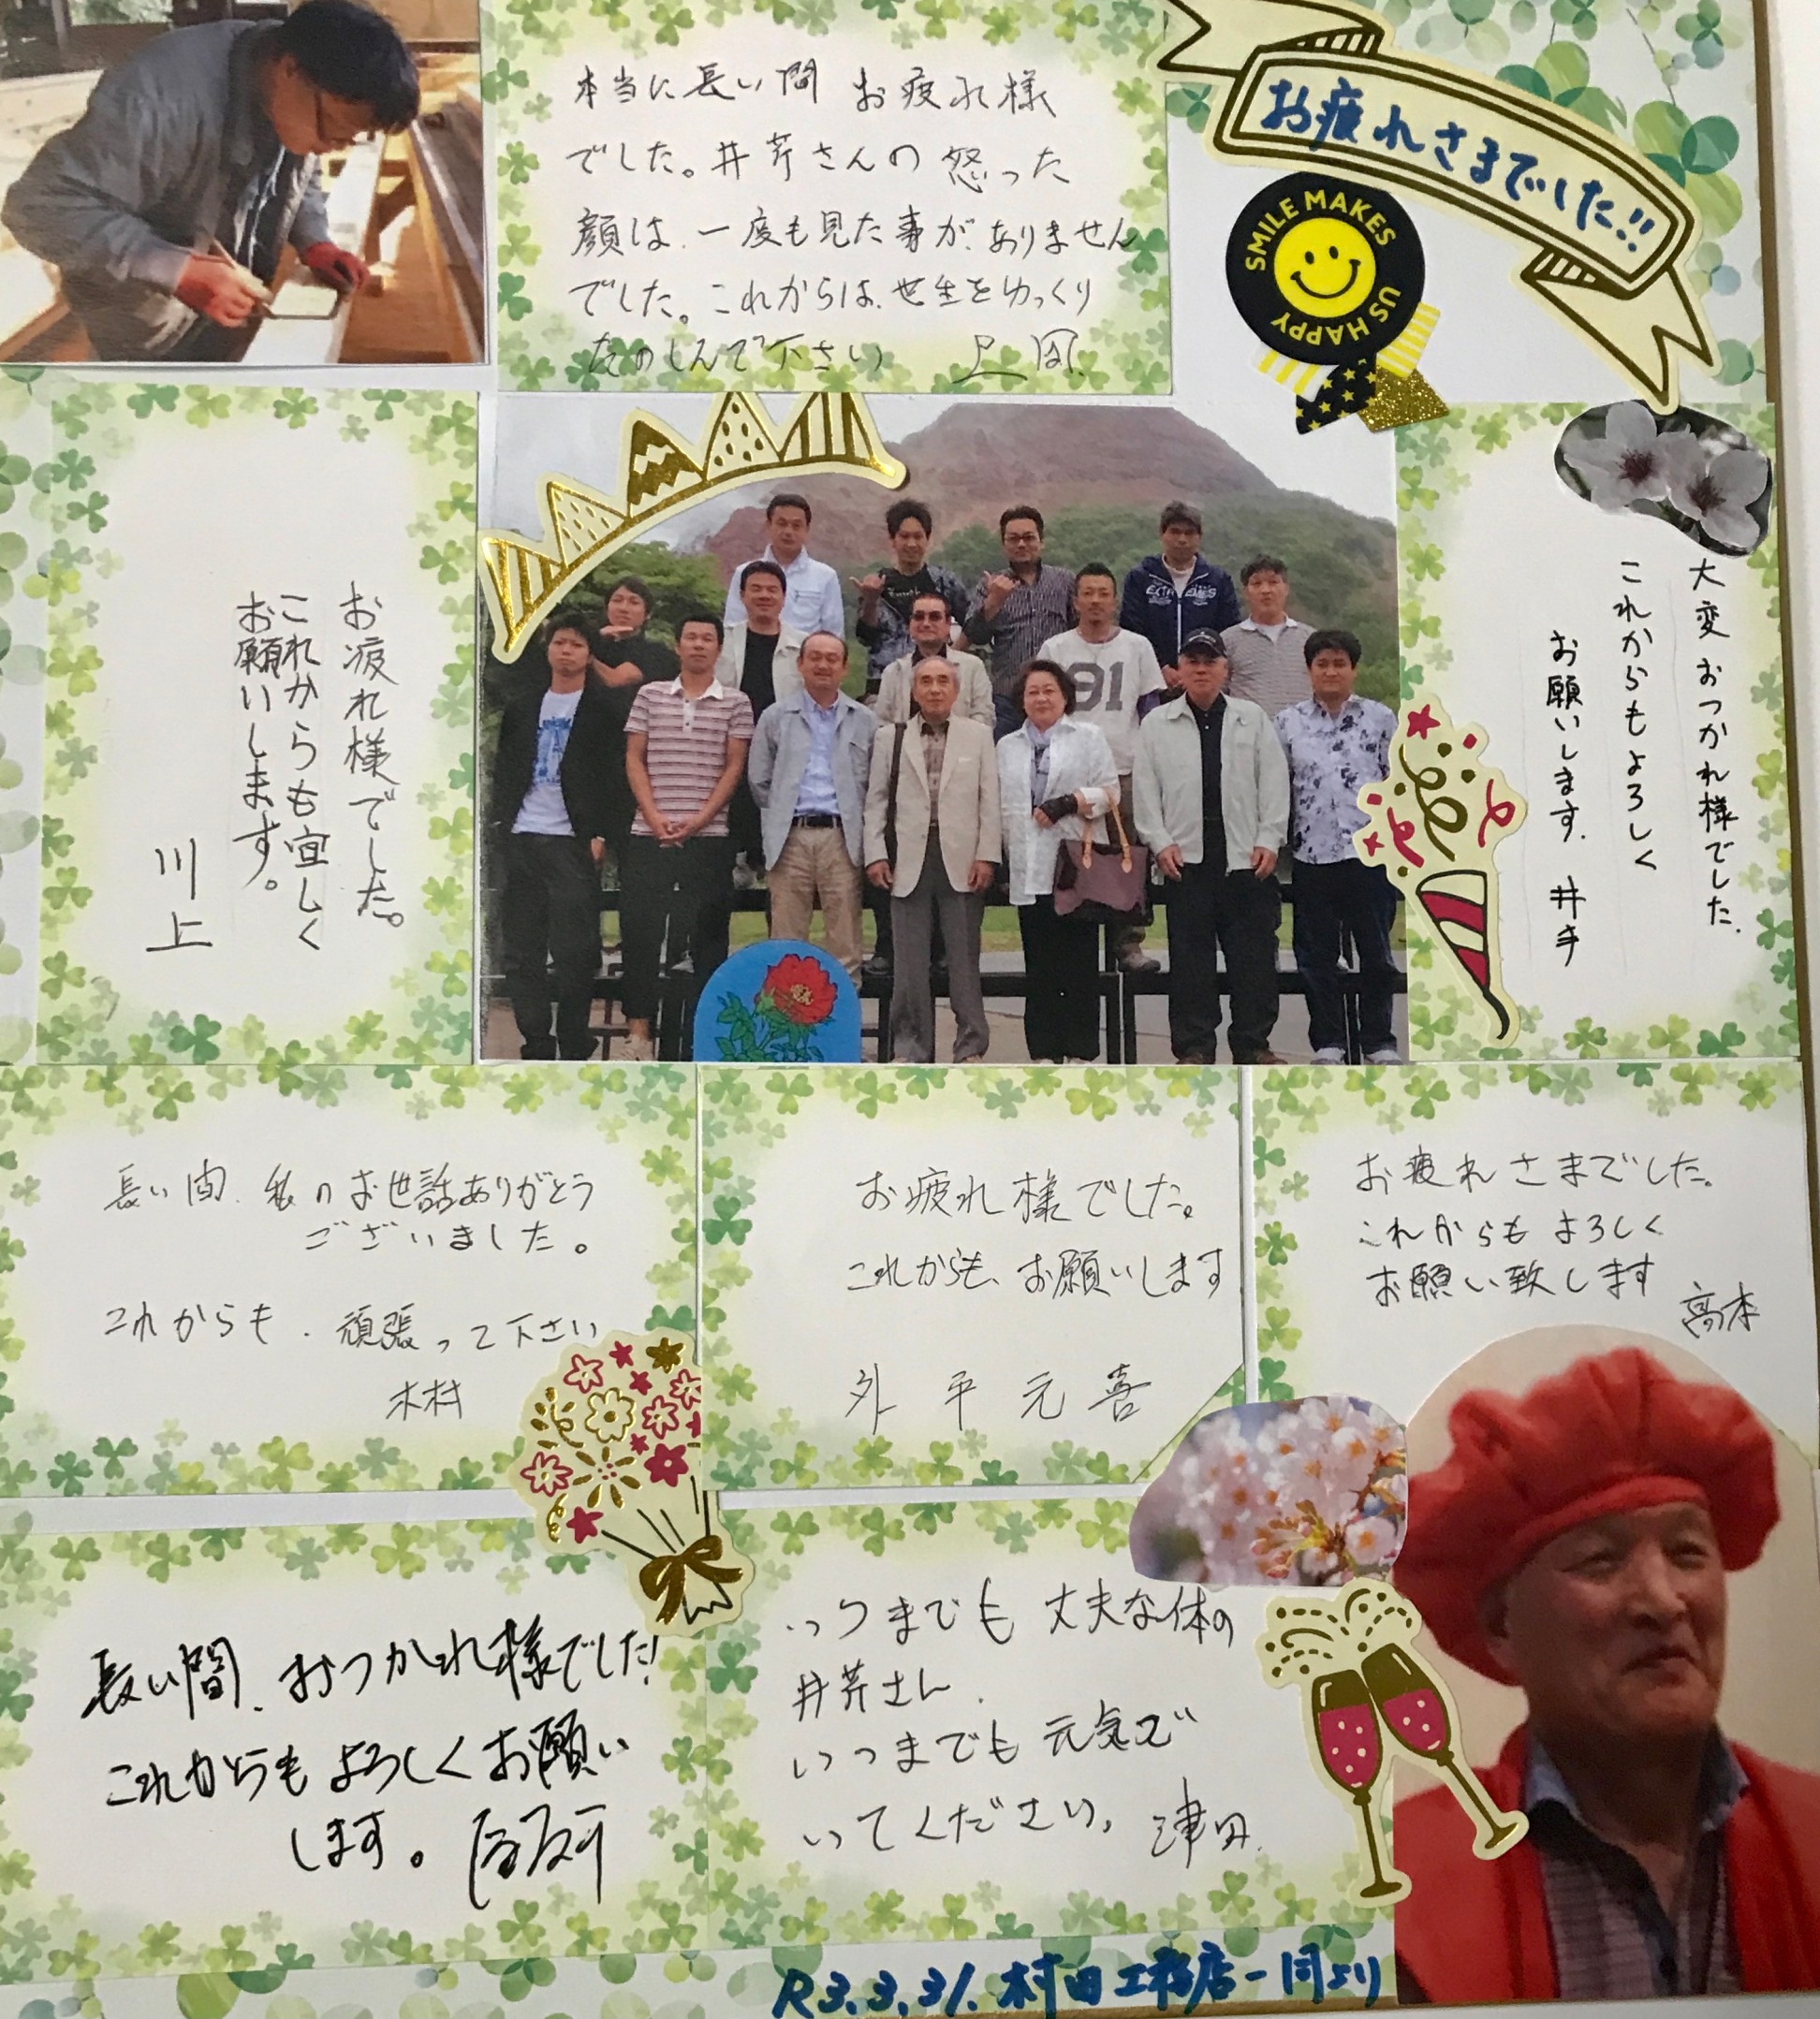 本当に長い間 お疲れ様
でした。井芹さんの怒った
顔は、一度も見た事が、ありません
でした。これからは、世生をゆっくり
たのしんで下さい 上田
お疲れさまでした!!
SMILE MAKES
US HAPPY
お疲れ様でした。
これからも宜しく
お願いします。
川上
91
大変おつかれ様でした.
これからもよろしく
お願いします. 井手
長い間、私のお世話ありがとう
ございました。
これからも、頑張って下さい
木村
お疲れ様でした。
これからも、お願いします
外平元喜
お疲れさまでした。
これからもよろしく
お願い致します
高本
長い間、おつかれ様でした!
これからもよろしくお願い
します。
いつまでも 丈夫な体の
井芹さん、
いつまでも元気で
いてください。 津田.
R3.3.31. 村田工務店一同より